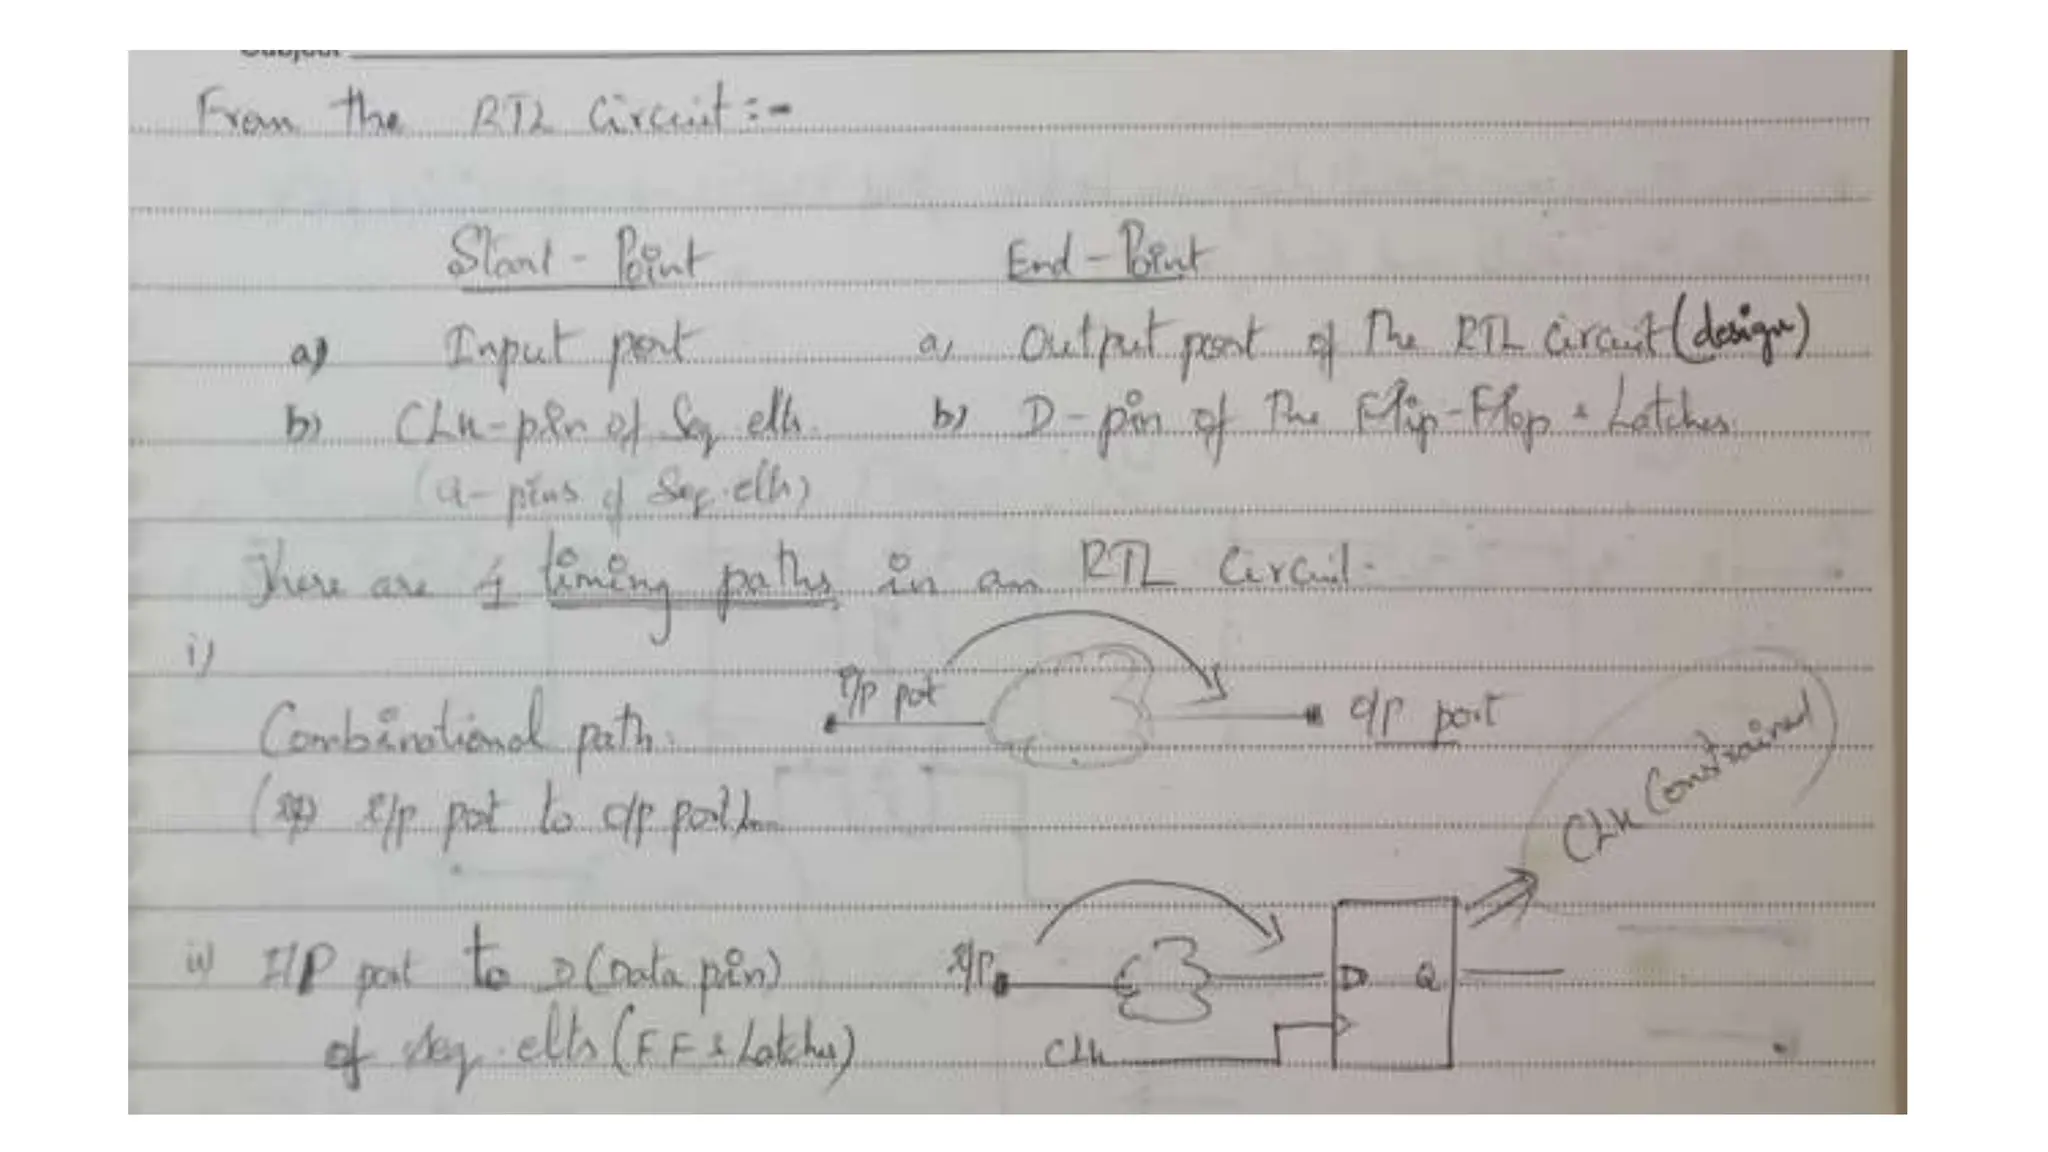 Subject
From the RTL Circuit :-
Start-Point End-Point
a) Input port a, Output port of The RTL Circuit (design)
b) CLK-pin of Seq elts. b) D-pin of The Flip-Flop & Latches.
(Q-pins of Seq. elts)
There are 4 timing paths in an RTL Circuit.
i)
I/p port
Combinational path. O/P port
( I/p port to O/p port)
CLK Constrained
ii) I/P port to D (Data pin) I/P D Q
of seq. elts (FF & Latches) CLK